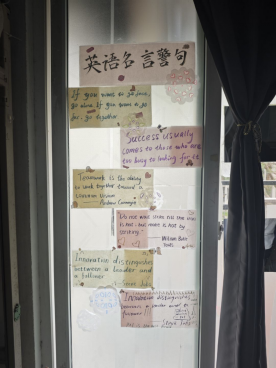 英语名言警句
If you want to go fast,
go alone. If you want to go
far, go together
Success usually
comes to those who are
too busy to looking for it
Teamwork is the ability
to work together toward a
common vision
Andrew Carnegie
Do not wait
is hot, but make it hot by
striking.
William
Innovation distinguishes
between a leader and
a follower
Steve Jobs
Innovation distinguishes
between a leader and a
follower
Steve Jobs